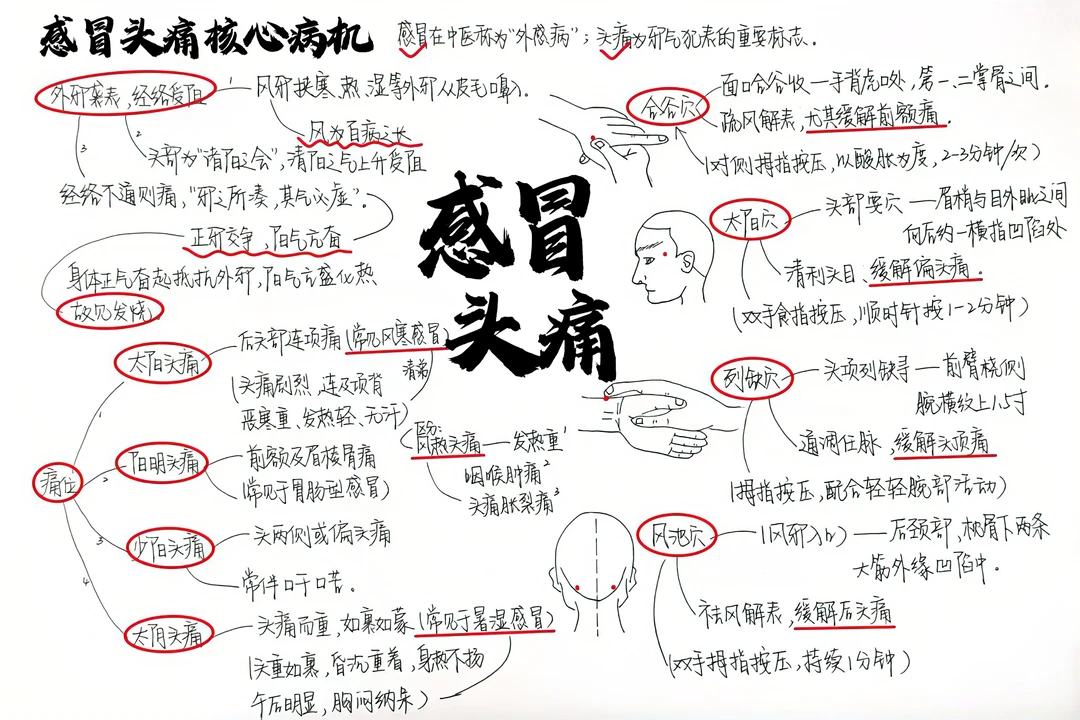 感冒头痛核心病机
感冒在中医称为"外感病"；头痛为邪气犯表的重要标志.
外邪袭表,经络受阻
1
风邪挟寒、热、湿等外邪从皮毛口鼻入.
风为百病之长
2
头部为"诸阳之会",清阳之气上升受阻
3
经络不通则痛,"邪之所凑,其气必虚".
正邪交争,阳气亢奋
身体正气奋起抵抗外邪,阳气亢盛化热
故见发烧
感冒
头痛
痛位
1
太阳头痛
后头部连项痛(常见风寒感冒)
(头痛剧烈,连及项背
恶寒重、发热轻、无汗)
清涕
风热头痛
发热重1
咽喉肿痛2
头痛胀裂痛3
2
阳明头痛
前额及眉棱骨痛
(常见于胃肠型感冒)
3
少阳头痛
头两侧或偏头痛
常伴口干口苦.
4
太阴头痛
头痛而重,如裹如蒙(常见于暑湿感冒)
(头重如裹,昏沉重着,身热不扬
午后明显,胸闷纳呆)
合谷穴
面口合谷收—手背虎口处,第一、二掌骨之间.
疏风解表,尤其缓解前额痛.
(对侧拇指按压,以酸胀为度,2-3分钟/次)
太阳穴
头部要穴—眉梢与目外眦之间
向后约一横指凹陷处
清利头目、缓解偏头痛.
(双手食指按压,顺时针按1-2分钟)
列缺穴
头项列缺寻—前臂桡侧
腕横纹上1.5寸
通调任脉,缓解头项痛
(拇指按压,配合轻轻腕部活动)
风池穴
(风邪入口)—后颈部,枕骨下两条
大筋外缘凹陷中.
祛风解表,缓解后头痛
(双手拇指按压,持续1分钟)